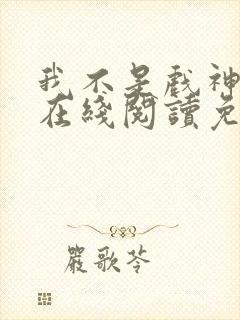 我不是戲神
在綫閱讀免
嚴歌苓